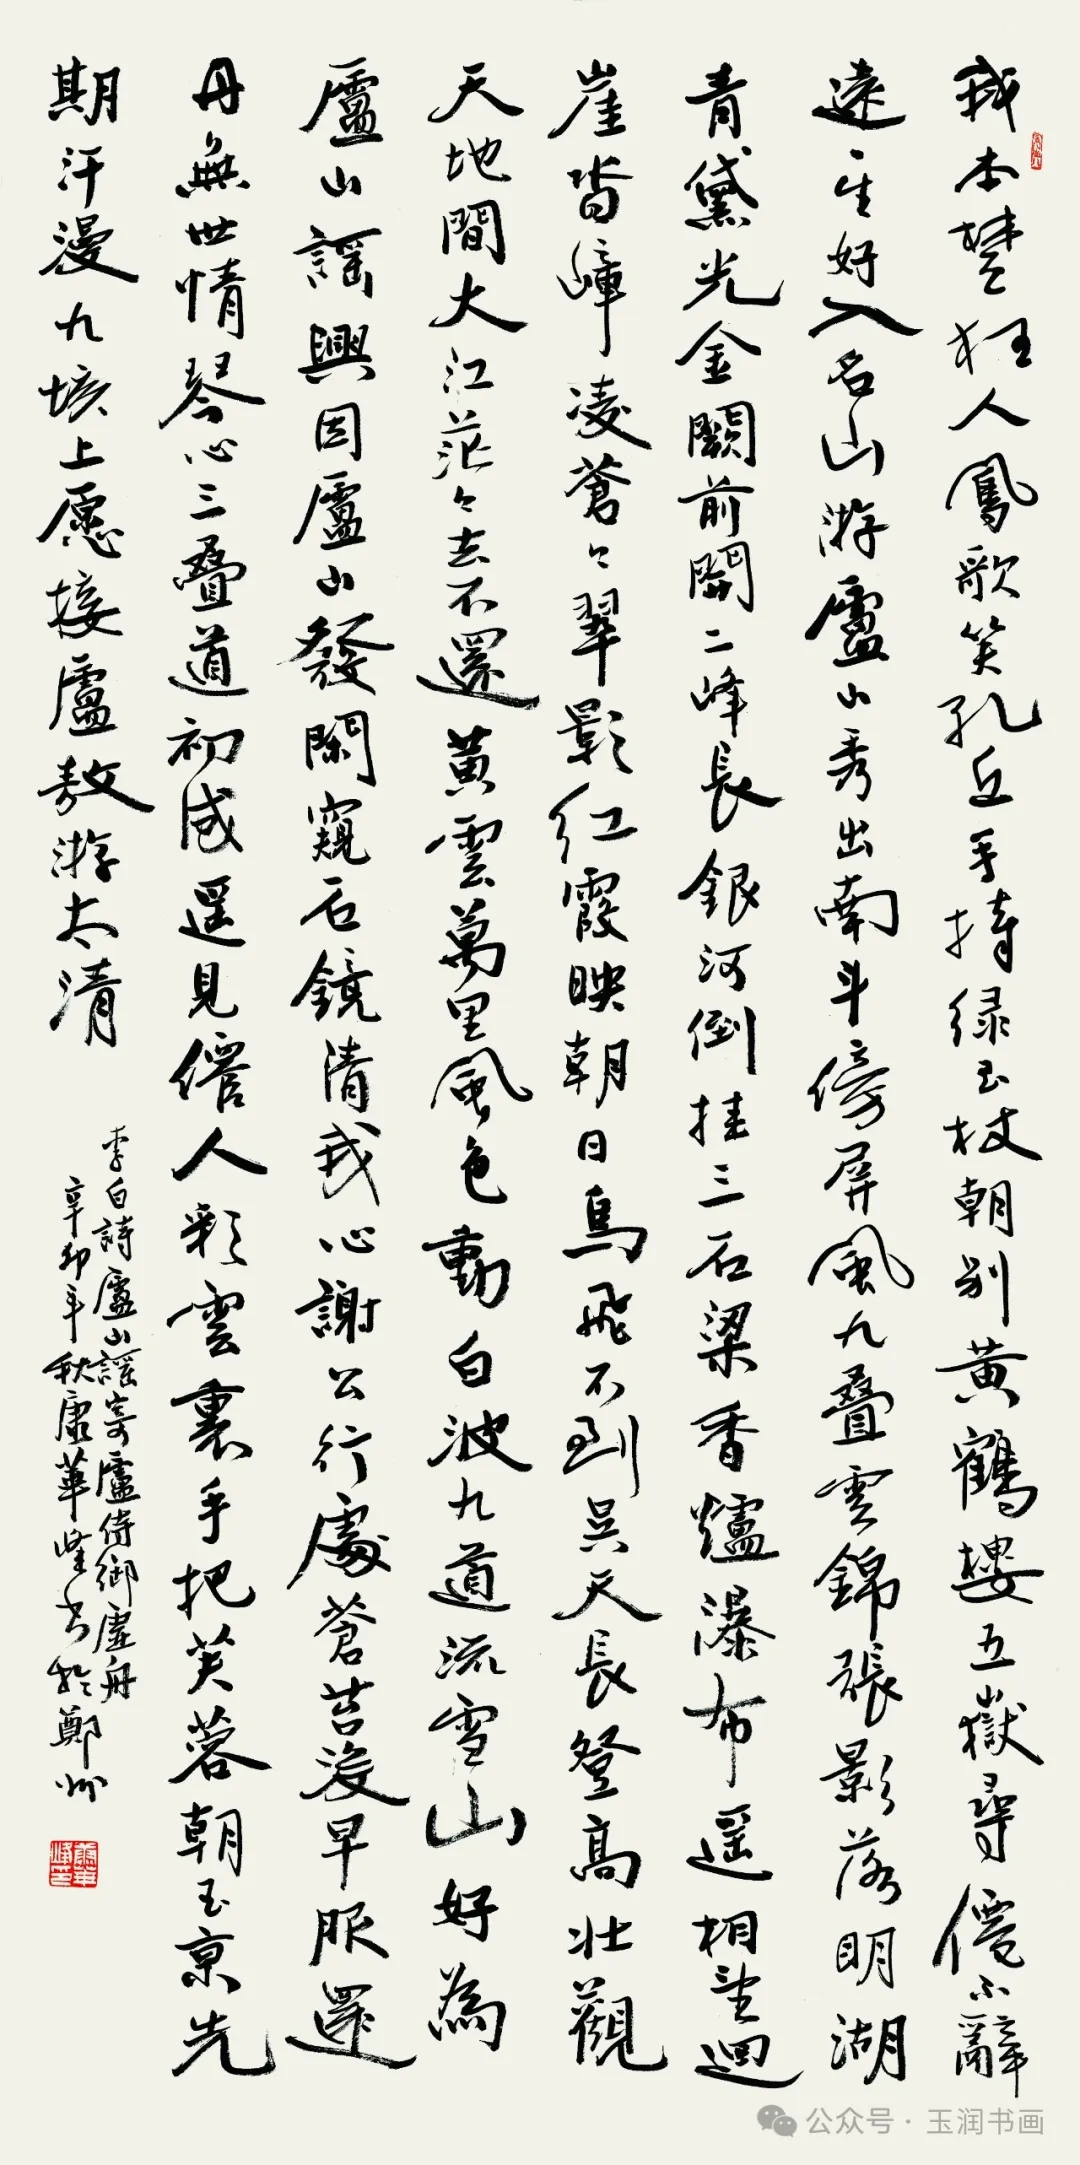 我本楚狂人鳳歌笑孔丘手持绿玉杖朝别黄鶴樓五嶽尋僊不辭
遠一生好入名山游廬山秀出南斗傍屏風九叠雲錦張影落明湖
青黛光金闕前開二峰長銀河倒挂三石梁香爐瀑布遥相望迴
崖沓嶂凌蒼々翠影红霞映朝日鳥飛不到吳天長登高壯觀
天地間大江茫々去不還黄雲萬里風色動白波九道流雪山好為
廬山謡興因廬山發閑窺石鏡清我心謝公行處蒼苔没早服還
丹無世情琴心三叠道初成遥見僊人彩雲裏手把芙蓉朝玉京先
期汗漫九垓上愿接廬敖游太清
李白詩廬山謡寄廬侍御虚舟
辛卯年秋康華峰书於鄭州
公众号·玉润书画